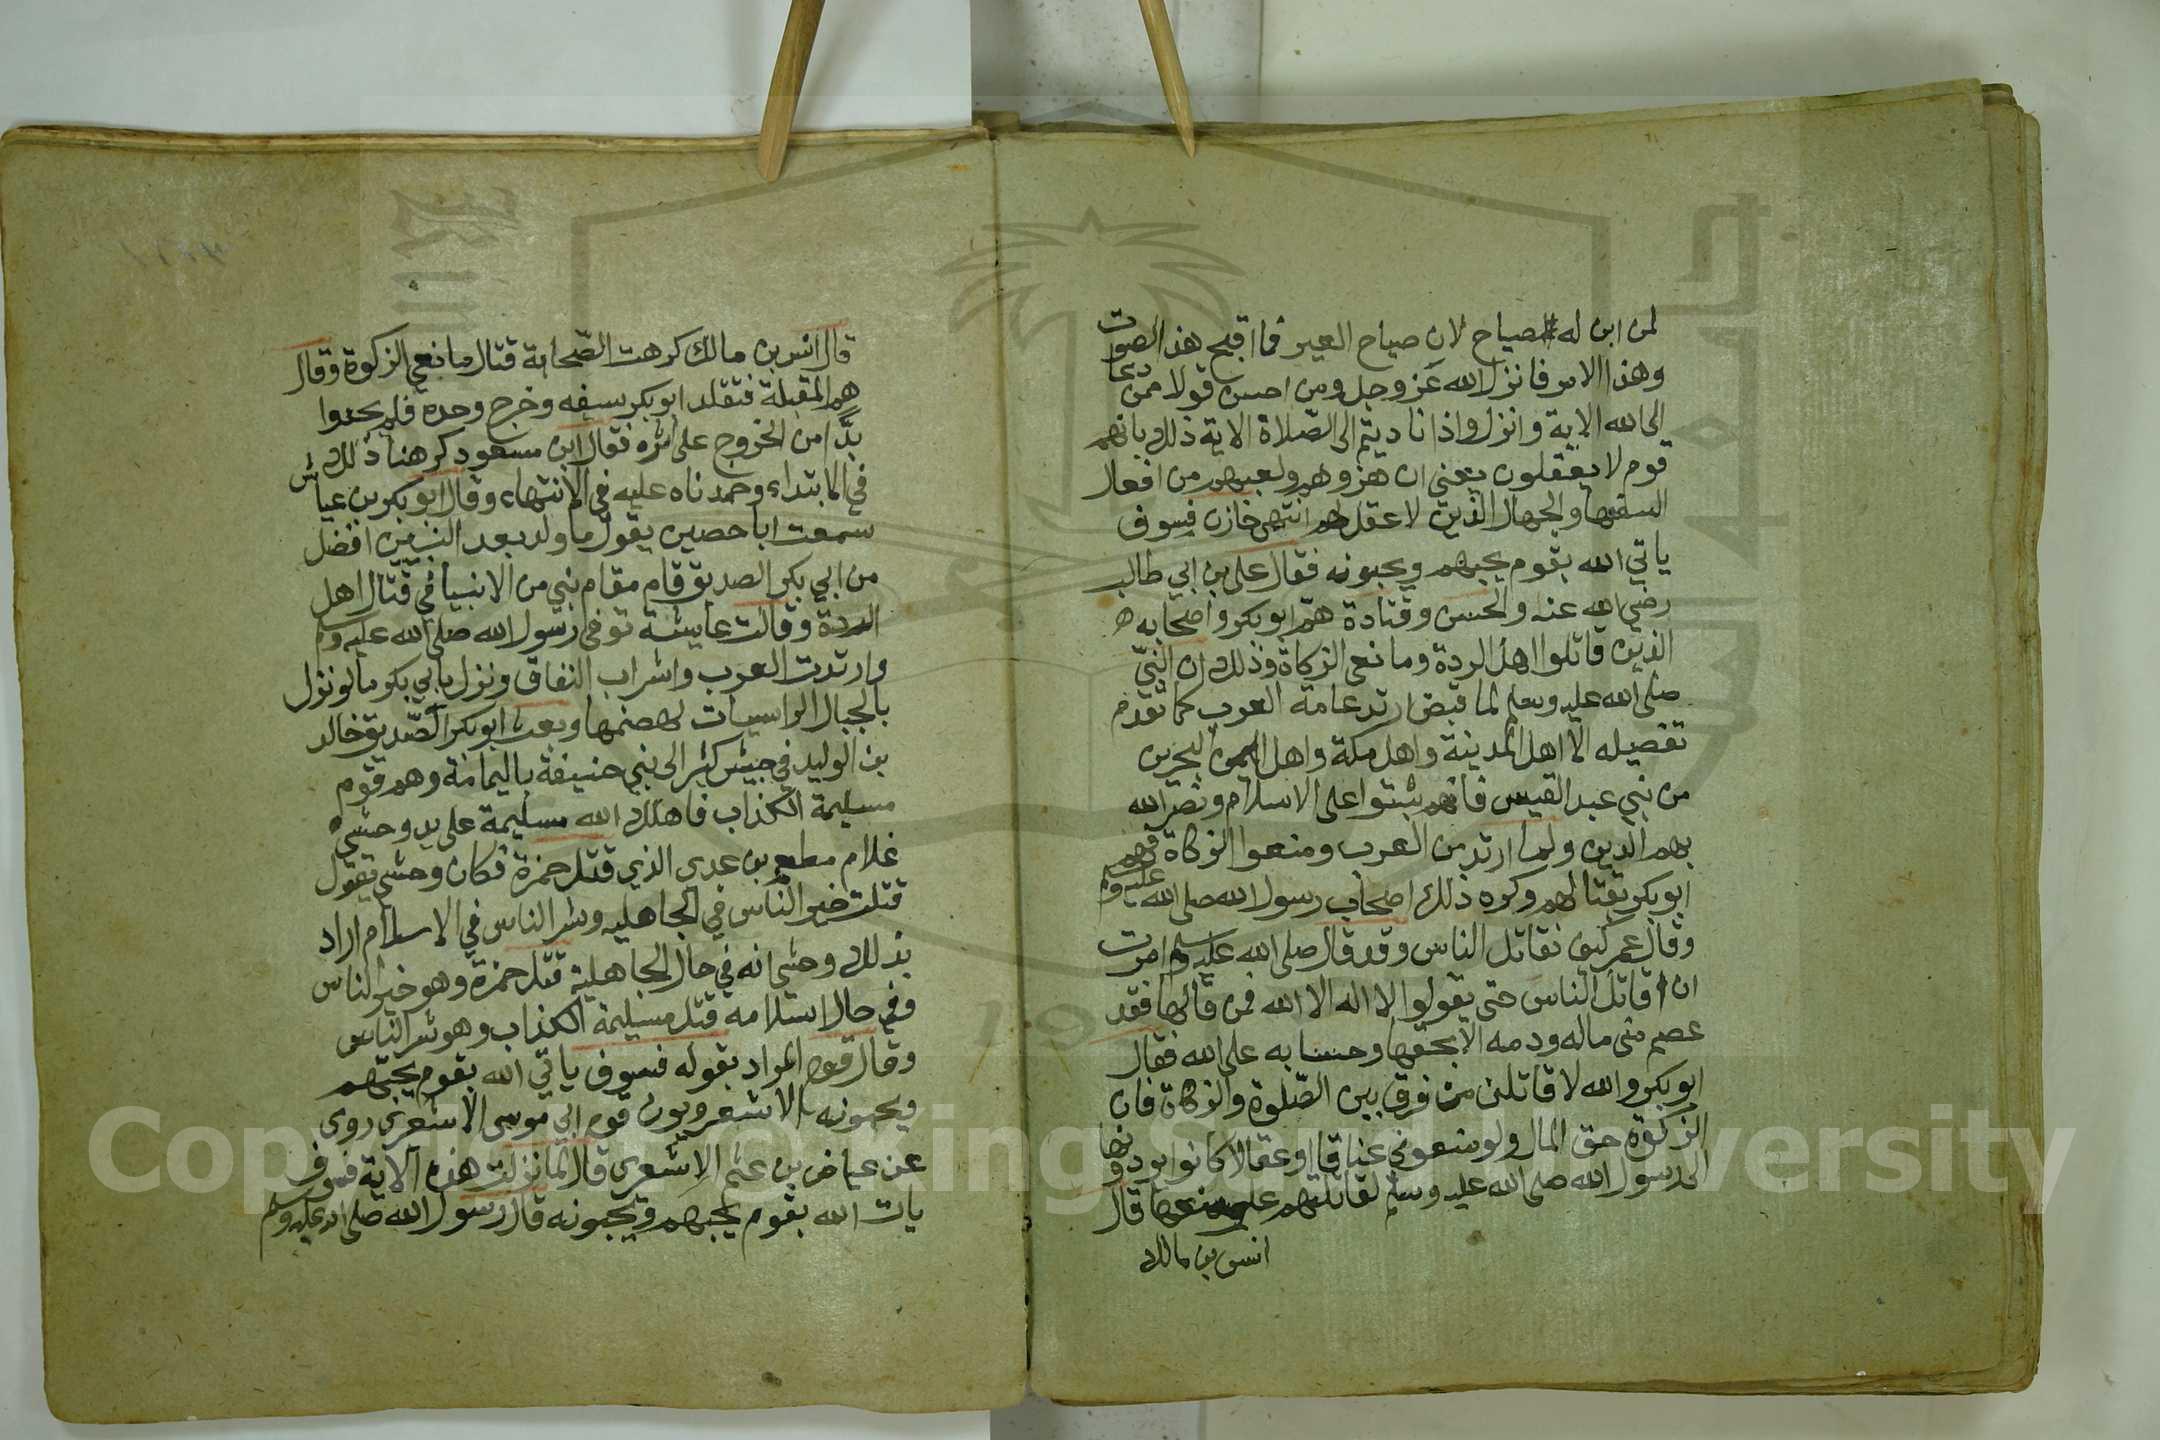 لمن ابن له الصياح لان صياح العير فما اقبح هذا الصوت
وهذا الامر فانزل الله عز وجل ومن احسن قولا ممن دعا
الى الله الاية وانزل واذا ناديتم الى الصلاة الاية ذلك بانهم
قوم لا يعقلون يعني ان هزوهم ولعبهم من افعال
السفها والجهال الذين لا عقل لهم انتهى خازن فسوف
ياتي الله بقوم يحبهم ويحبونه فقال علي بن ابي طالب
رضي الله عنه والحسن وقتادة هم ابوبكر واصحابه
الذين قاتلوا اهل الردة ومانعى الزكاة وذلك ان النبي
صلى الله عليه وسلم لما قبض ارتد عامة العرب كما تقدم
تفصيله الا اهل المدينة واهل مكة واهل البحرين
من بني عبد القيس فانهم ثبتوا على الاسلام ونصر الله
بهم الدين ولما ارتد من العرب ومنعوا الزكاة فهم
ابوبكر بقتالهم وكره ذلك اصحاب رسول الله صلى الله عليه وم
وقال عمر كيف نقاتل الناس وقد قال صلى الله عليه وسلم امرت
ان اقاتل الناس حتى يقولوا لا اله الا الله فمن قالها فقد
عصم منى ماله ودمه الا بحقها وحسابه على الله فقال
ابوبكر والله لا قاتلن من فرق بين الصلوة والزكاة فان
الزكوة حق المال ولو منعونى عناقا او عقالا كانوا يودونها
الى رسول الله صلى الله عليه وسلم لقاتلتهم على منعها قال
انس بن مالك
قال انس بن مالك كرهت الصحابة قتال مانعي الزكوة وقال
هم المقبلة فتقلد ابوبكر بسيفه وخرج وحده فلم يجدوا
بدا من الخروج على اثره فقال ابن مسعود كرهنا ذلك
في الابتداء وحمدناه عليه في الانتهاء وقال ابوبكر بن عياش
سمعت ابا حصين يقول ما ولد بعد النبيين افضل
من ابي بكر الصديق قام مقام نبي من الانبيا في قتال اهل
الردة وقالت عايشة توفى رسول الله صلى الله عليه وم
وارتدت العرب واشراب النفاق ونزل بابي بكر ما لو نزل
بالجبال الراسيات لهضمها وبعث ابوبكر الصديق خالد
بن الوليد في جيش كثير الى بني حنيفة باليمامة وهم قوم
مسليمة الكذاب فاهلك الله مسليمة على يد وحشي
غلام مطعم بن عدى الذي قتل حمزة فكان وحشي يقول
قتلت خير الناس في الجاهليه وشر الناس في الاسلام اراد
بذلك وحشي انه في حال الجاهلية قتل حمزة وهو خير الناس
وفي حال اسلامه قتل مسيلمة الكذاب وهو شر الناس
وقال قوم المراد بقوله فسوف ياتي الله بقوم يحبهم
ويحبونه الاشعرويون قوم ابي موسى الاشعري روى
عن عياض بن غنم الاشعرى قال لما نزلت هذه الاية فسوف
يات الله بقوم يحبهم ويحبونه قال رسول الله صلى الله عليه وسلم
Copyright © King Saud University